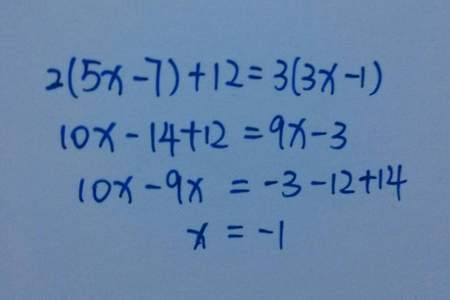 2(5x-7)+12=3(3x-1)
10x-14+12=9x-3
10x-9x=-3-12+14
x=-1